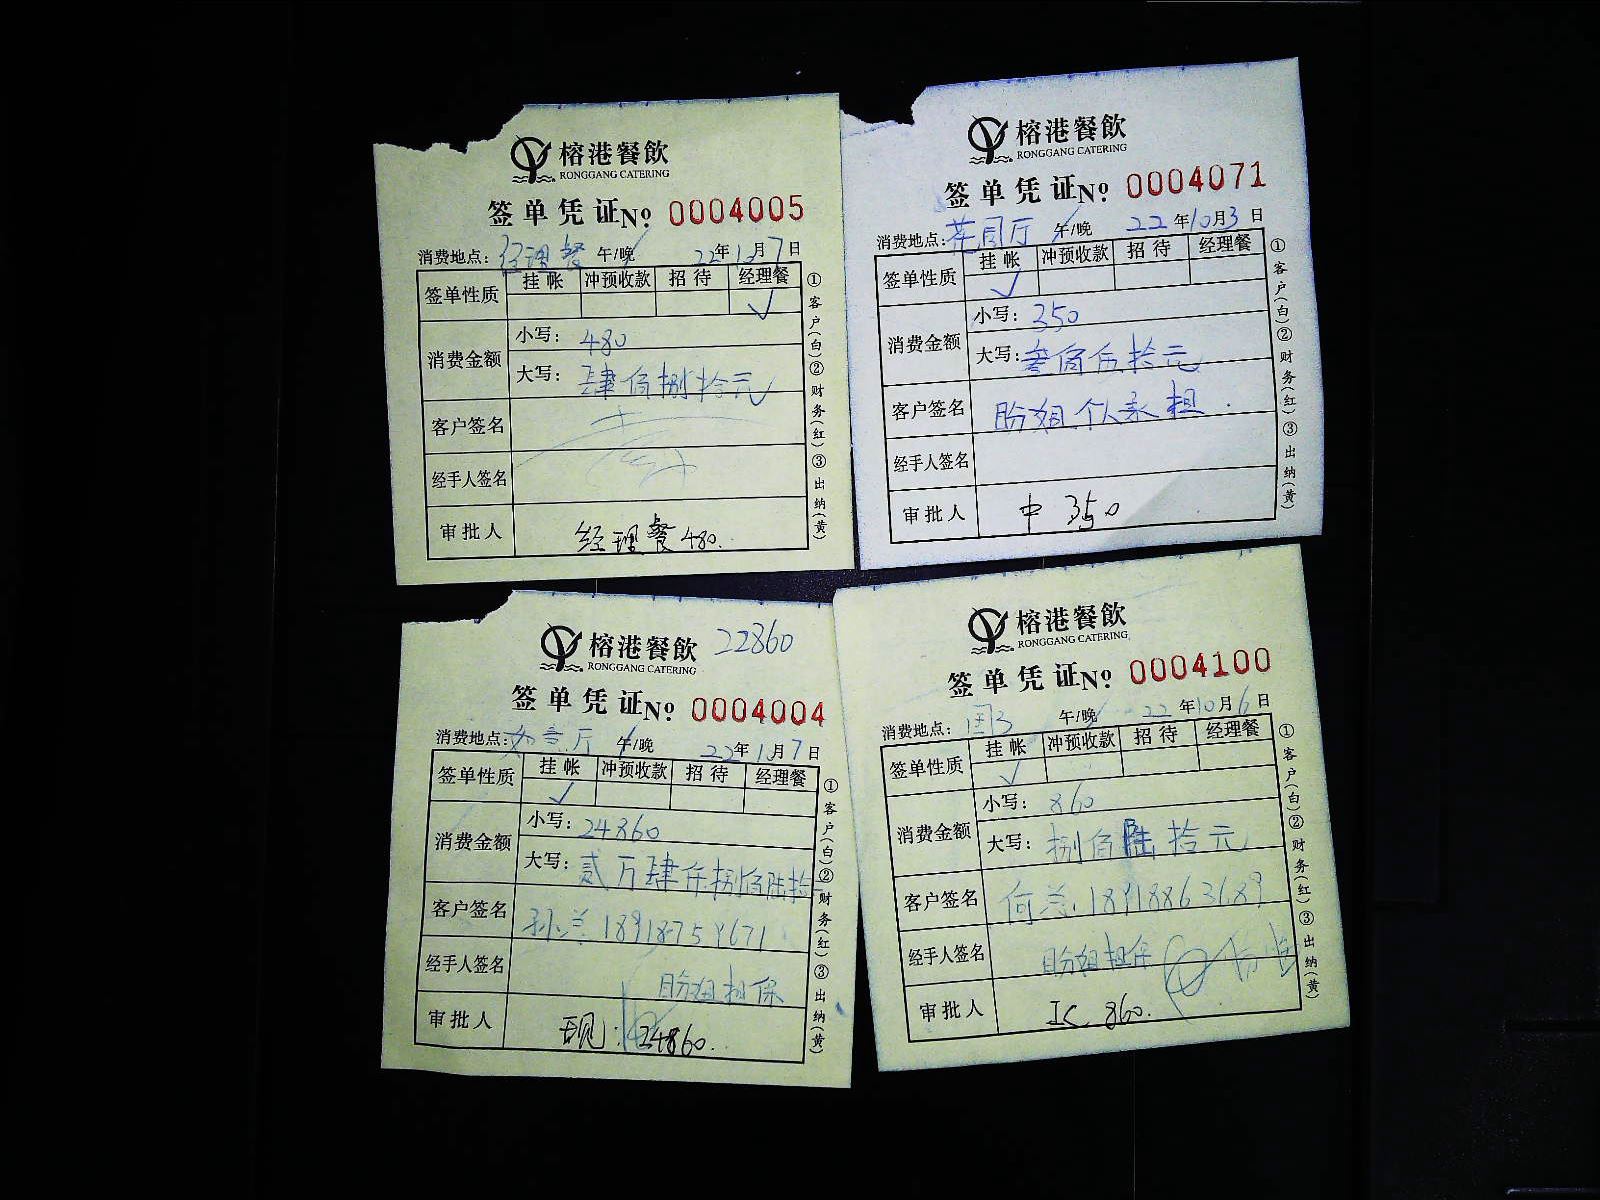 榕港餐飲
RONGGANG CATERING
签单凭证No 0004005
消费地点：经理餐 午/晚 22年1月7日
签单性质 挂帐 冲预收款 招待 经理餐
✓
消费金额 小写：480
大写：肆佰捌拾元
客户签名
经手人签名
审批人 经理餐480.
①客户(白)②财务(红)③出纳(黄)
榕港餐飲
RONGGANG CATERING
签单凭证No 0004071
消费地点： 午/晚 22年10月3日
签单性质 挂帐 冲预收款 招待 经理餐
✓
消费金额 小写：350
大写：叁佰伍拾元
客户签名 盼姐个人承担.
经手人签名
审批人 中 350
①客户(白)②财务(红)③出纳(黄)
榕港餐飲 22860
RONGGANG CATERING
签单凭证No 0004004
消费地点：如意厅 午/晚 22年1月7日
签单性质 挂帐 冲预收款 招待 经理餐
✓
消费金额 小写：24860
大写：贰万肆仟捌佰陆拾
客户签名 孙总
经手人签名 盼姐担保
审批人 现：24860.
①客户(白)②财务(红)③出纳(黄)
榕港餐飲
RONGGANG CATERING
签单凭证No 0004100
消费地点：国3 午/晚 22年10月6日
签单性质 挂帐 冲预收款 招待 经理餐
✓
消费金额 小写：860
大写：捌佰陆拾元
客户签名 何总.18918863689
经手人签名 盼姐担保
审批人 860.
①客户(白)②财务(红)③出纳(黄)